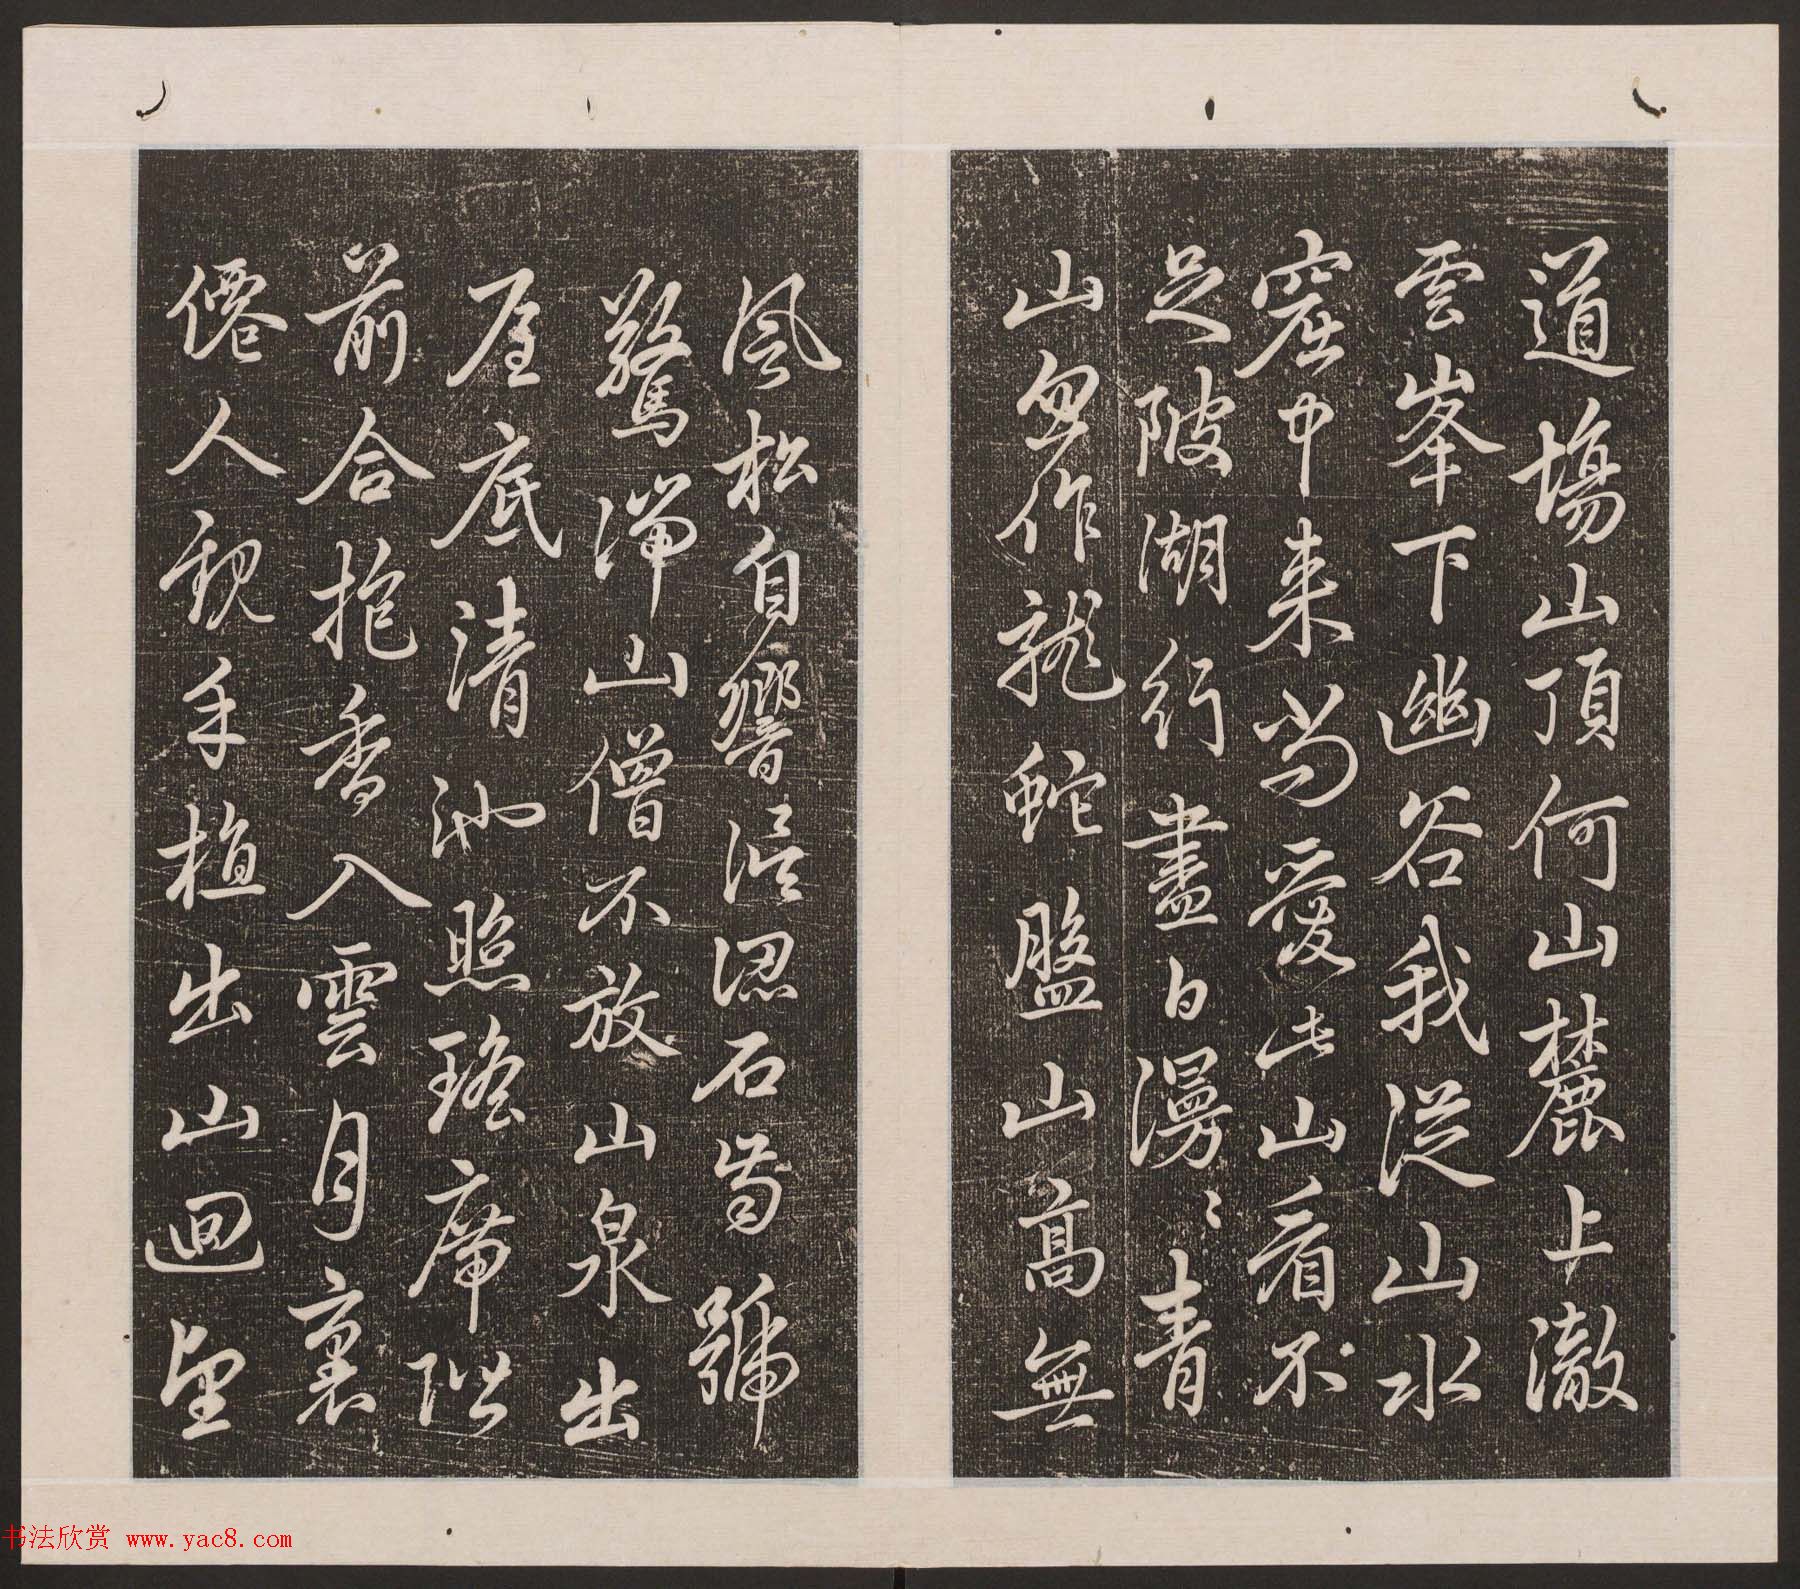 道塲山頂何山麓上澈
雲峯下幽谷我從山水
窟中来尚愛此山看不
足陂湖行盡白漫〻青
山忽作龍蛇盤山高無
風松自響誤認石齒號
驚湍山僧不放山泉出
屋底清池照瑤席階
前合抱香入雲月裏
僊人親手植出山迴望
书法欣赏 www.yac8.com